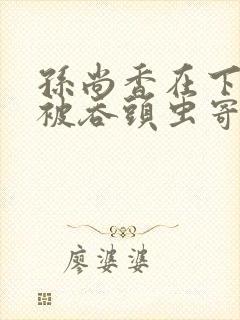 孫尚香在下
被吞頭虫寄
廖婆婆